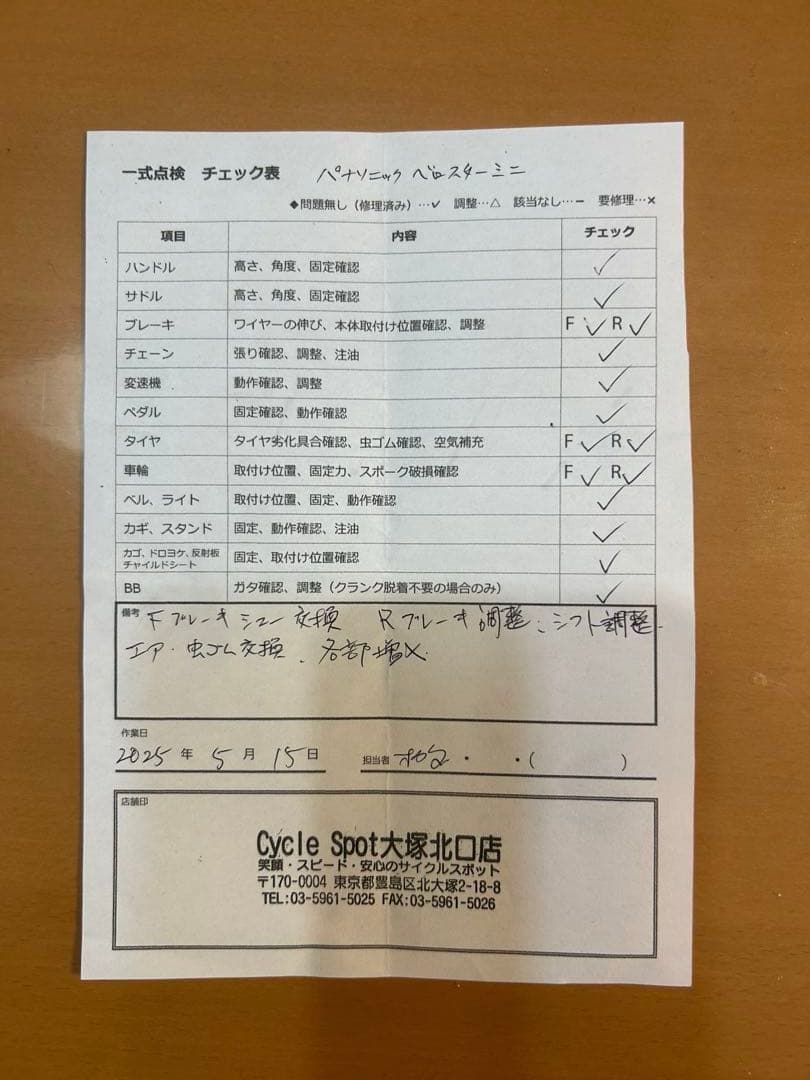 一式点検 チェック表 パナソニック ベロスターミニ
◆問題無し（修理済み）…✓ 調整…△ 該当なし…− 要修理…×
項目 内容 チェック
ハンドル 高さ、角度、固定確認 ✓
サドル 高さ、角度、固定確認 ✓
ブレーキ ワイヤーの伸び、本体取付け位置確認、調整 F ✓ R ✓
チェーン 張り確認、調整、注油 ✓
変速機 動作確認、調整 ✓
ペダル 固定確認、動作確認 ✓
タイヤ タイヤ劣化具合確認、虫ゴム確認、空気補充 F ✓ R ✓
車輪 取付け位置、固定力、スポーク破損確認 F ✓ R ✓
ベル、ライト 取付け位置、固定、動作確認 ✓
カギ、スタンド 固定、動作確認、注油 ✓
カゴ、ドロヨケ、反射板
チャイルドシート 固定、取付け位置確認 ✓
BB ガタ確認、調整（クランク脱着不要の場合のみ） ✓
備考 Fブレーキシュー交換 Rブレーキ調整、シフト調整、
エア・虫ゴム交換、各部増〆
作業日
2025 年 5 月 15 日 担当者 ・ ・（ ）
店舗印
Cycle Spot大塚北口店
笑顔・スピード・安心のサイクルスポット
〒170-0004 東京都豊島区北大塚2-18-8
TEL:03-5961-5025 FAX:03-5961-5026